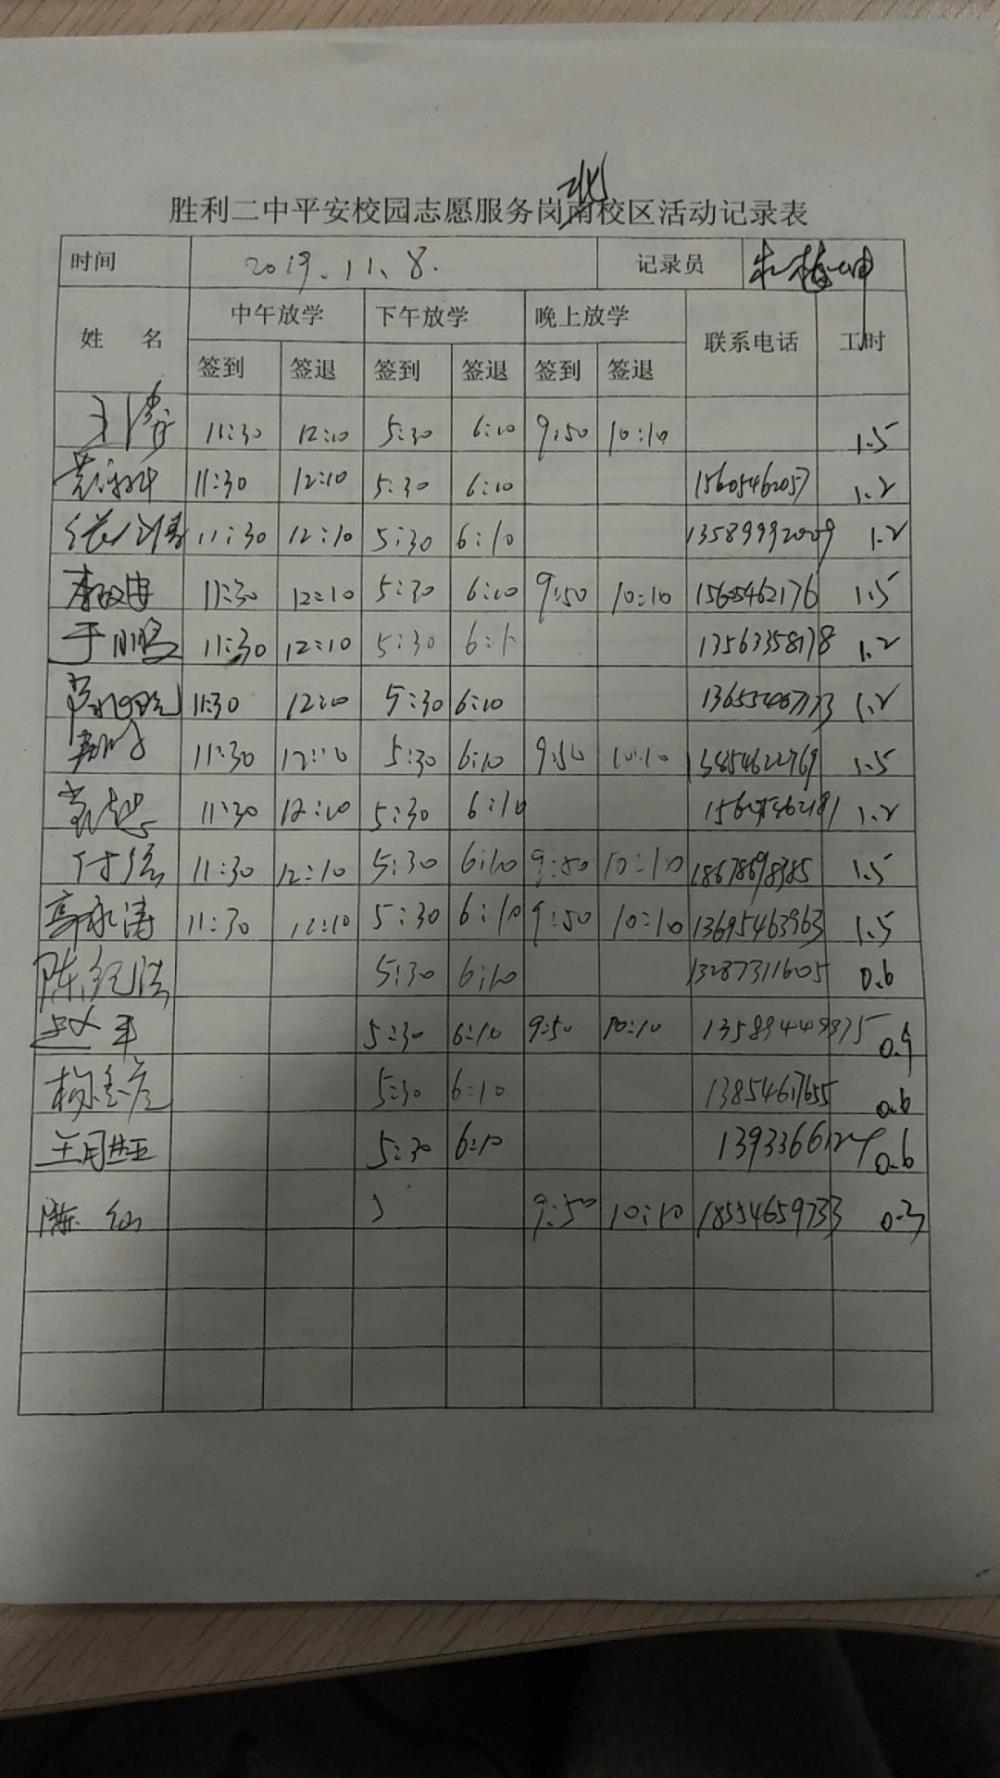 北
胜利二中平安校园志愿服务岗南校区活动记录表
时间 2019.11.8. 记录员
姓 名 中午放学 下午放学 晚上放学 联系电话 工时
签到 签退 签到 签退 签到 签退
11:30 12:10 5:30 6:10 9:50 10:10 1.5
11:30 12:10 5:30 6:10 15605462057 1.2
11:30 12:10 5:30 6:10 13589992009 1.2
11:30 12:10 5:30 6:10 9:50 10:10 15605462176 1.5
于鹏 11:30 12:10 5:30 6:1 13563358178 1.2
11:30 12:10 5:30 6:10 1.2
11:30 12:10 5:30 6:10 9:50 10:10 13854622769 1.5
11:30 12:10 5:30 6:10 1.2
付强 11:30 12:10 5:30 6:10 9:50 10:10 18678698385 1.5
高永涛 11:30 12:10 5:30 6:10 9:50 10:10 13695463963 1.5
陈纪浩 5:30 6:10 13287311605 0.6
赵军 5:30 6:10 9:50 10:10 13589449375 0.9
杨金彦 5:30 6:10 13854617655 0.6
王月班 5:30 6:10 0.6
陈仙 9:50 10:10 18554659733 0.3